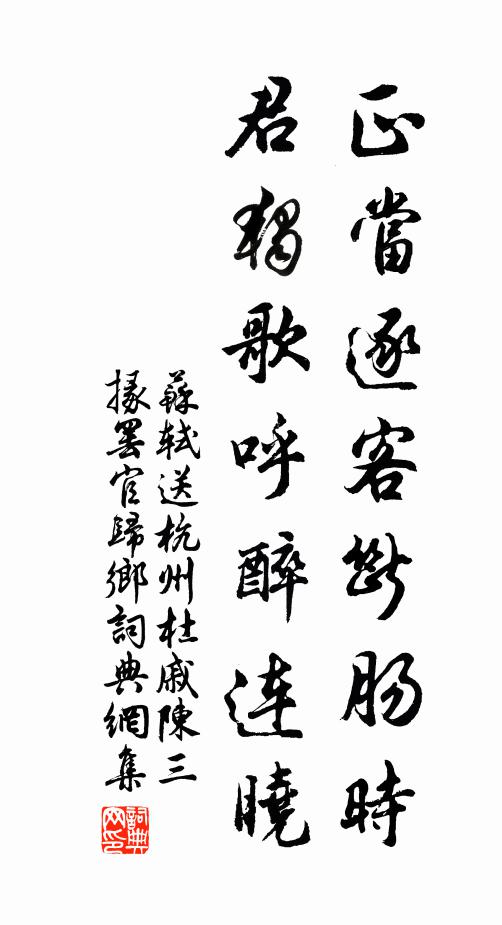 正當逐客斷肠時
君獨歌呼醉連曉
蘇軾送杭州杜戚陳三
掾罷官歸鄉詞典網集
詞典
网印